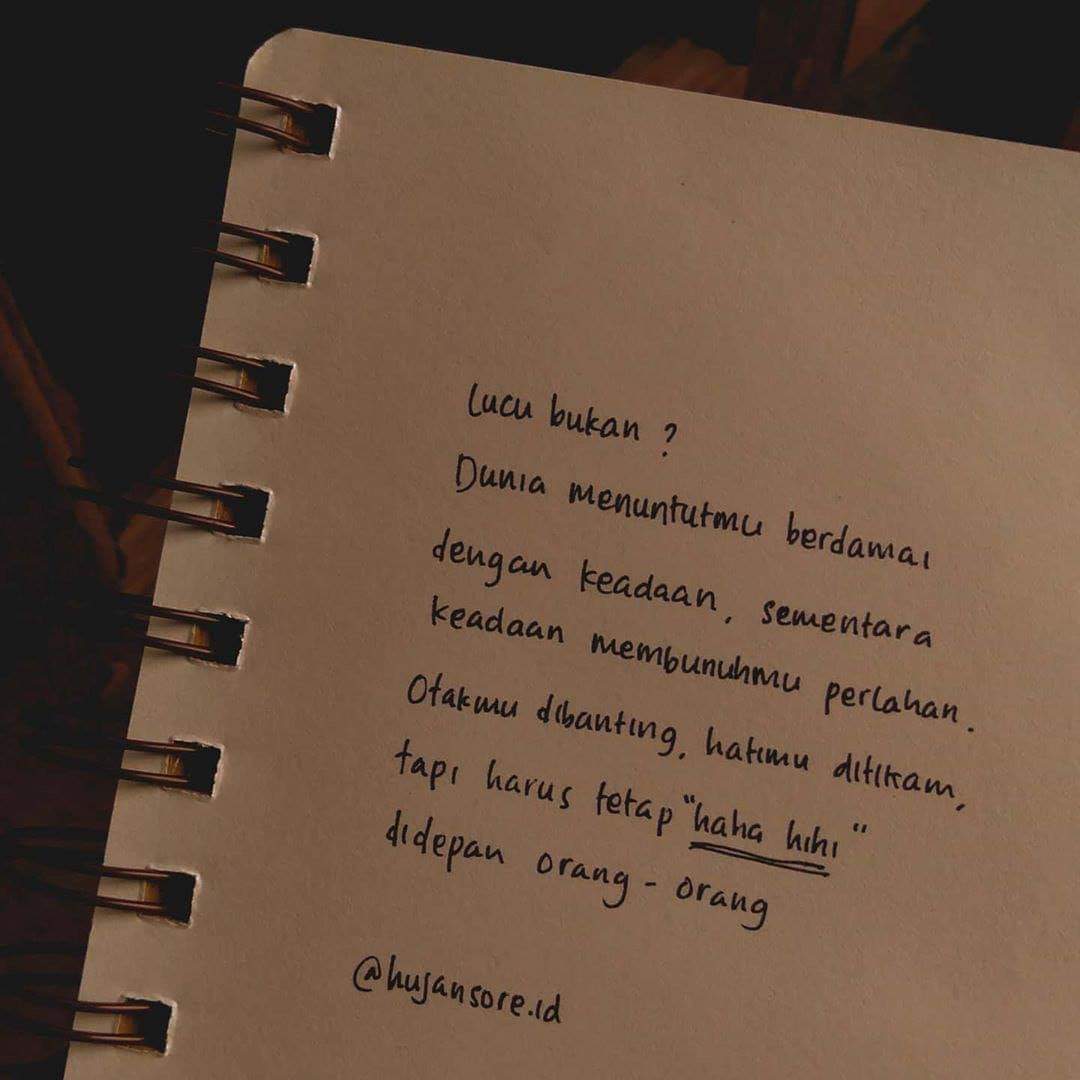 Lucu bukan ?
Dunia menuntutmu berdamai
dengan keadaan, sementara
keadaan membunuhmu perlahan.
Otakmu dibanting, hatimu ditikam,
tapi harus tetap "haha hihi"
didepan orang - orang
@hujansore.id